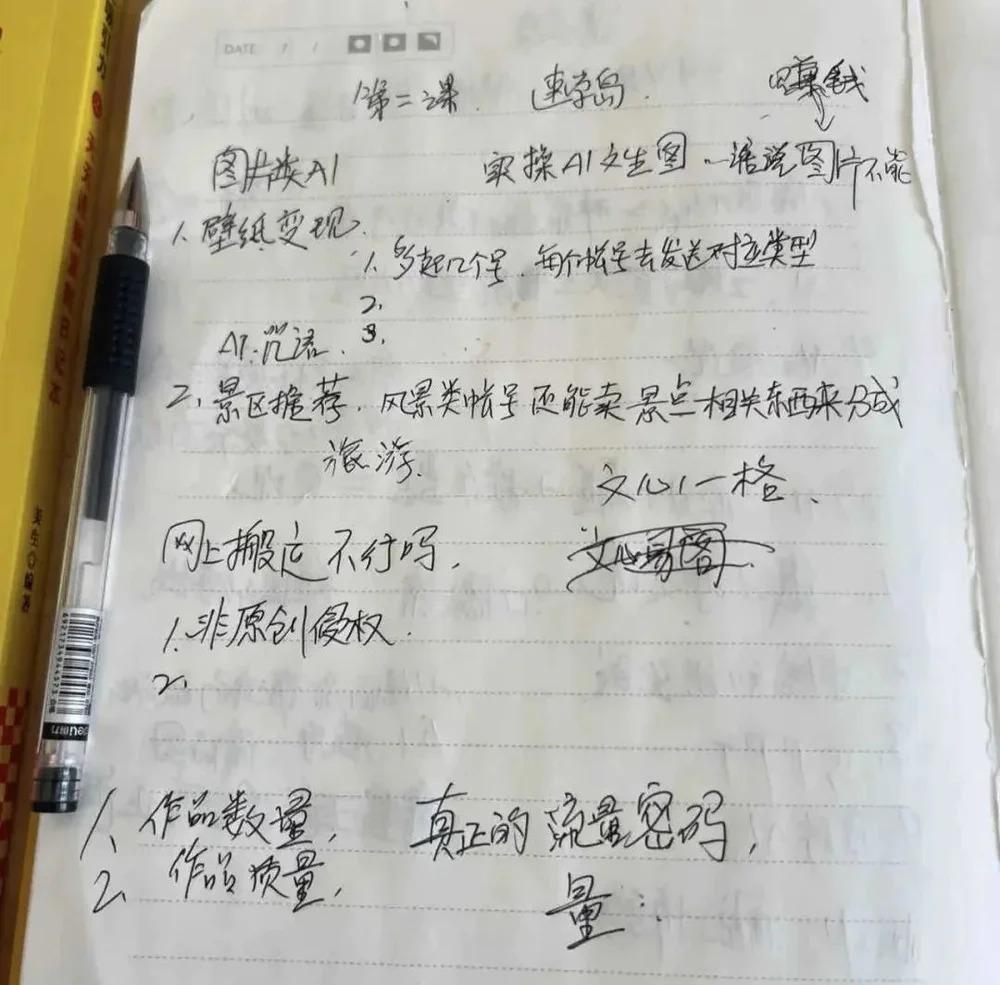 DATE / /
第二课 速学岛 赚钱
图片类AI 实操AI文生图 一语说图片不能
1、壁纸变现、
1、多起几个号、每个帐号去发送对应类型
2、
AI:咒语、3、
2、景区推荐、风景类帐号还能卖景点相关东西来分成
旅游、
文心一格、
网上搬运不行吗,
1、非原创侵权、
2、
1、作品数量, 真正的流量密码,
2、作品质量,
量:
英生◎编著
6921734944573
deli